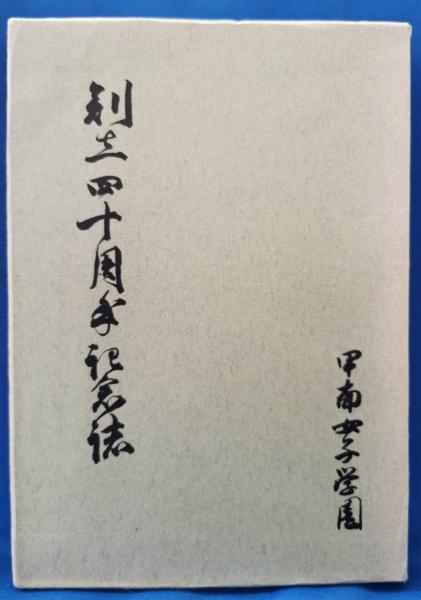 創立四十周年記念誌
甲南女子学園